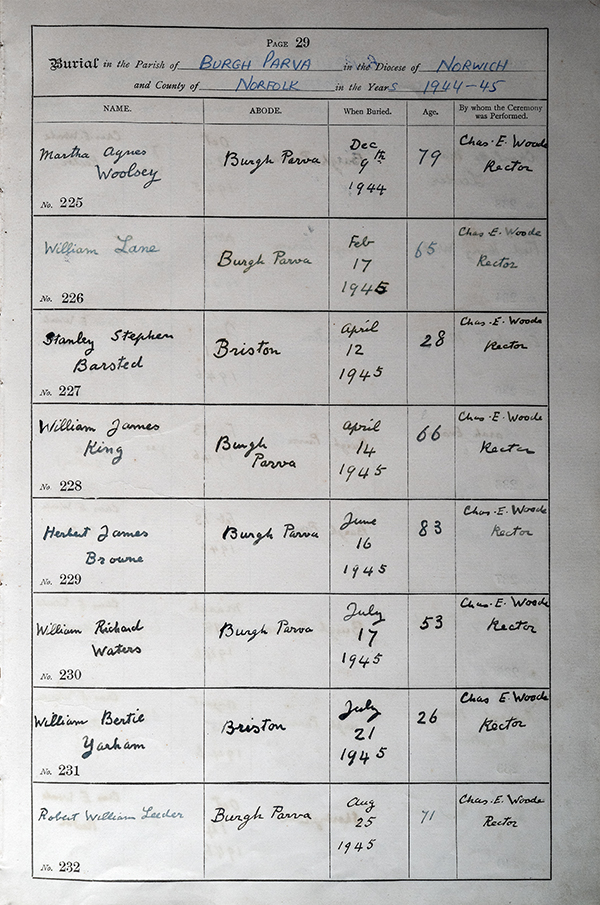 PAGE 29
Burial in the Parish of BURGH PARVA in the Diocese of NORWICH
and County of NORFOLK in the Years 1944-45
NAME. ABODE. When Buried. Age. By whom the Ceremony
was Performed.
Martha Agnes
Woolsey
No. 225
Burgh Parva
Dec
9th
1944
79
Chas. E. Woode
Rector
William Lane
No. 226
Burgh Parva
Feb
17
1945
65
Chas. E. Woode
Rector
Stanley Stephen
Barsted
No. 227
Briston
April
12
1945
28
Chas. E. Woode
Rector
William James
King
No. 228
Burgh
Parva
April
14
1945
66
Chas. E. Woode
Rector
Herbert James
Browne
No. 229
Burgh Parva
June
16
1945
83
Chas. E. Woode
Rector
William Richard
Waters
No. 230
Burgh Parva
July
17
1945
53
Chas. E. Woode
Rector
William Bertie
Yarham
No. 231
Briston
July
21
1945
26
Chas E. Woode
Rector
Robert William Leeder
No. 232
Burgh Parva
Aug
25
1945
71
Chas. E. Woode
Rector